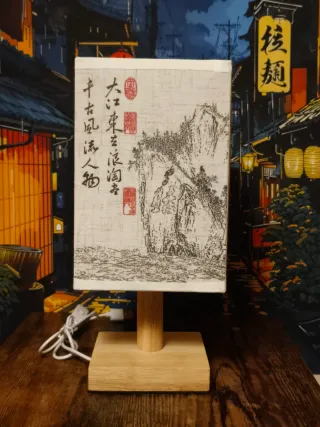 大江東去浪淘尽
千古風流人物
拉麵